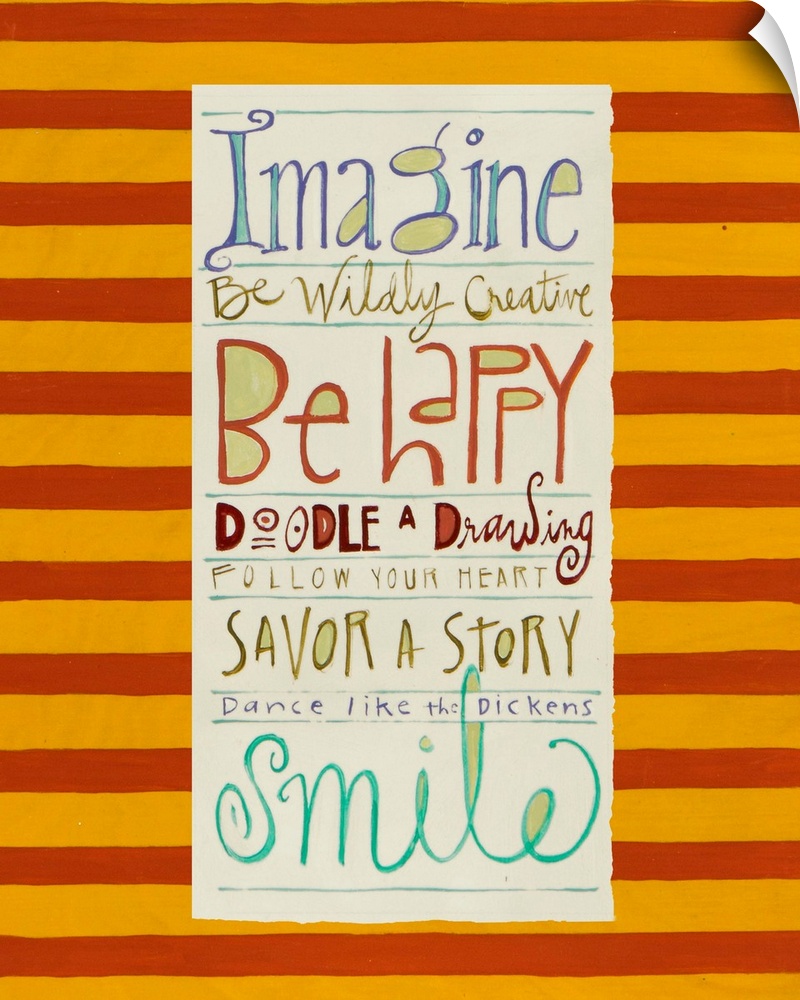 Imagine
Be Wildly Creative
Be happy
DOODLE A Drawing
FOLLOW YOUR HEART
SAVOR A STORY
Dance like the Dickens
Smile